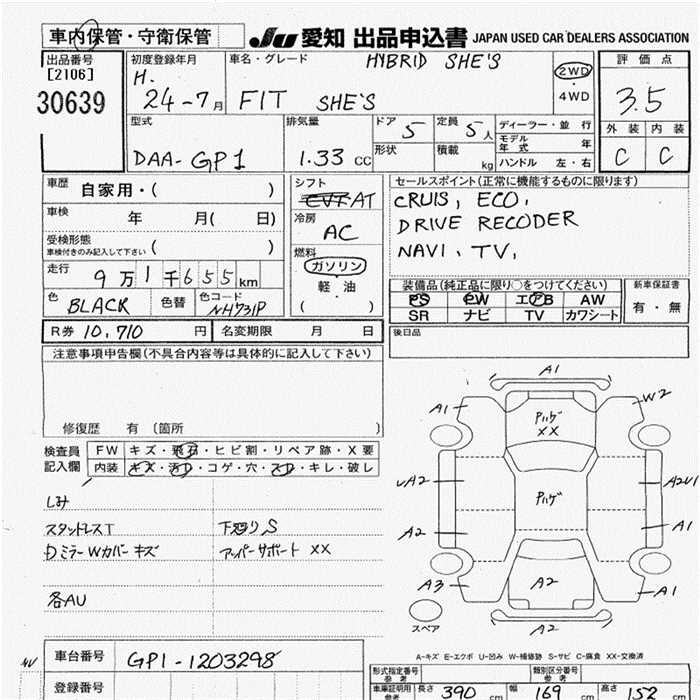 車内保管・守衛保管
JU 愛知 出品申込書 JAPAN USED CAR DEALERS ASSOCIATION
出品番号
[2106]
30639
初度登録年月
H.
24-7月
車名・グレード
HYBRID SHE'S
FIT SHE'S
2WD
4WD
評価点
3.5
外装 内装
C C
型式
DAA-GP1
排気量
1.33 CC
ドア 5
形状
定員 5人
積載 kg
ディーラー・並行
モデル年式 年
ハンドル 左・右
車歴 自家用・( )
車検 年 月( 日)
受検形態
車検付きのみ記入して下さい ( )
走行 9万1千655km
色 BLACK 色替 色コード NH731P
R券 10,710 円 名変期限 月 日
シフト
CVT AT
冷房
AC
燃料
ガソリン
軽・油
( )
セールスポイント(正常に機能するものに限ります)
CRUIS, ECO,
DRIVE RECODER
NAVI, TV,
装備品(純正品に限り○をつけてください)
PS PW エアB AW
SR ナビ TV カワシート
新車保証書
有・無
後日品
注意事項申告欄(不具合内容等は具体的に記入して下さい)
修復歴 有 〔箇所 〕
検査員記入欄
FW キズ・飛石・ヒビ割・リペア跡・X要
内装 キズ・汚レ・コゲ・穴・スレ・キレ・破レ
しみ
スタッドレスT 下廻りS
Dミラーwカバーキズ アッパーサポート XX
各AU
A1
A1 W2
パリハゲ
XX
A2 A2U1
ハゲ
A2 A1
A3 A2 A1
スペア A2
A-キズ E-エクボ U-凹み W-補修跡 S-サビ C-腐食 XX-交換済
車台番号 GP1-1203298
登録番号
形式指定番号
参考
類別区分番号
参考
車庫証明用
参考
長さ 390 cm 幅 169 cm 高さ 152 cm